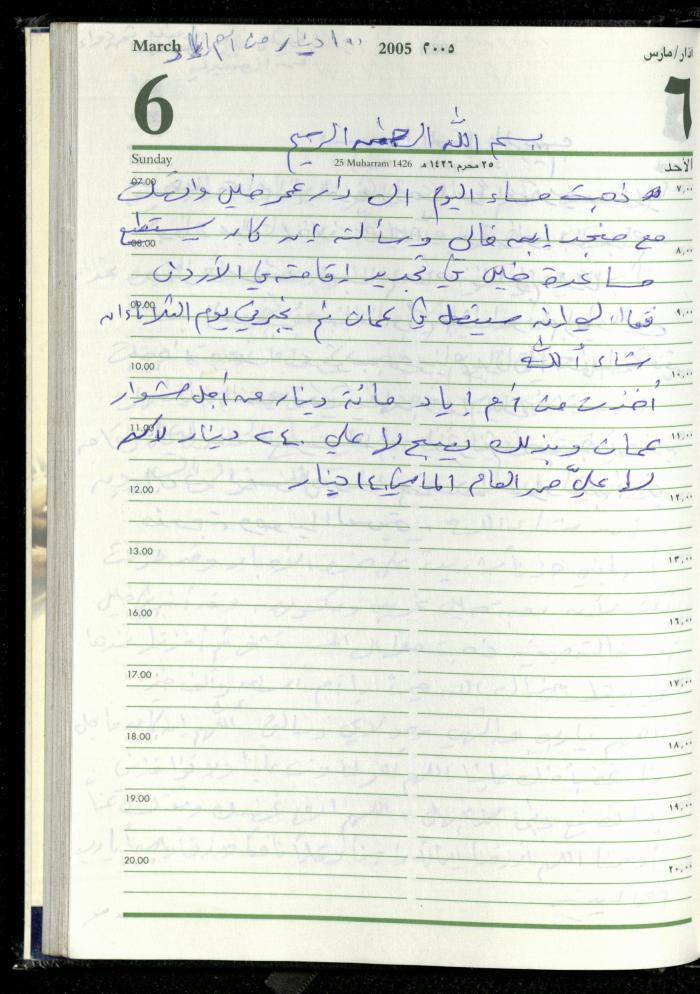 March ١٠٠ دينار من أم إياد 2005 ٢٠٠٥ اذار/مارس
6 ٦
بسم الله الرحمن الرحيم
Sunday 25 Muharram 1426 ٢٥ محرم ١٤٢٦ هـ الأحد
07.00 ٧,٠٠
ذهبت مساء اليوم الى دار عمر خليل
08.00 ٨,٠٠
مع ابنه فالي وسألته إن كان يستطيع
مساعدة خليل في تجديد إقامته في الأردن
09.00 ٩,٠٠
فقال لي إنه سيتصل في عمان ثم يخبرني يوم الثلاثاء ان
شاء الله
10.00 ١٠,٠٠
أخذت من أم إياد مائة دينار من أجل مشوار
11.00 ١١,٠٠
عمان وبذلك يصبح لا علي ٢٤٠ دينار
12.00 ١٢,٠٠
لا عليّ من العام الماضي ١٤٠ دينار
13.00 ١٣,٠٠
16.00 ١٦,٠٠
17.00 ١٧,٠٠
18.00 ١٨,٠٠
19.00 ١٩,٠٠
20.00 ٢٠,٠٠